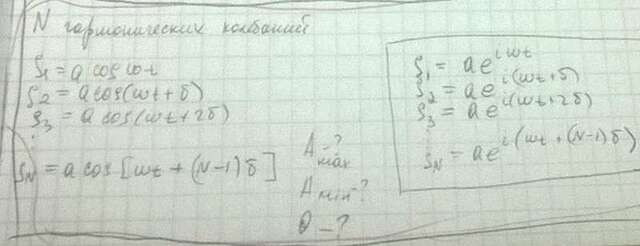 N гармонических колбаний
ξ₁ = a cos ωt
ξ₂ = a cos(ωt + δ)
ξ₃ = a cos(ωt + 2δ)
⋮
ξN = a cos [ωt + (N-1)δ]
A max - ?
A min - ?
θ - ?
ξ₁ = ae^{iωt}
ξ₂ = ae^{i(ωt+δ)}
ξ₃ = ae^{i(ωt+2δ)}
⋮
ξN = ae^{i(ωt + (N-1)δ)}